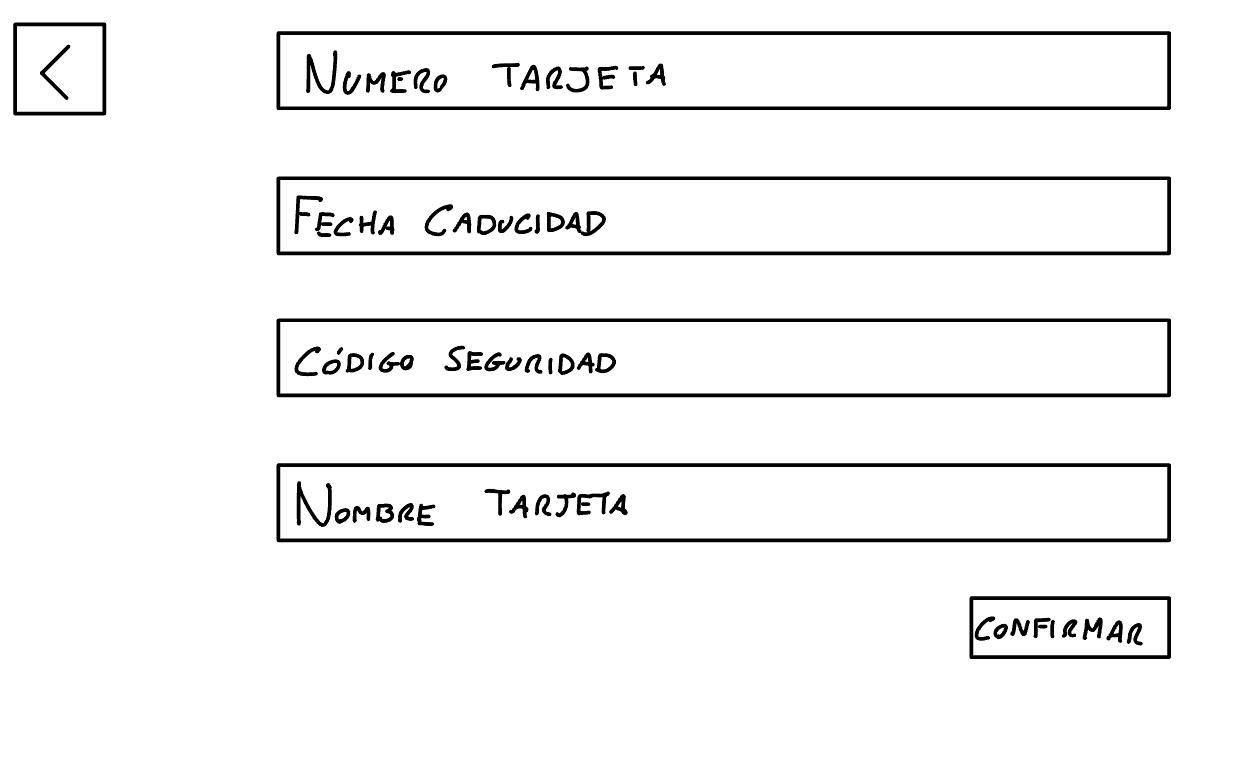 NUMERO TARJETA
FECHA CADUCIDAD
CÓDIGO SEGURIDAD
NOMBRE TARJETA
CONFIRMAR